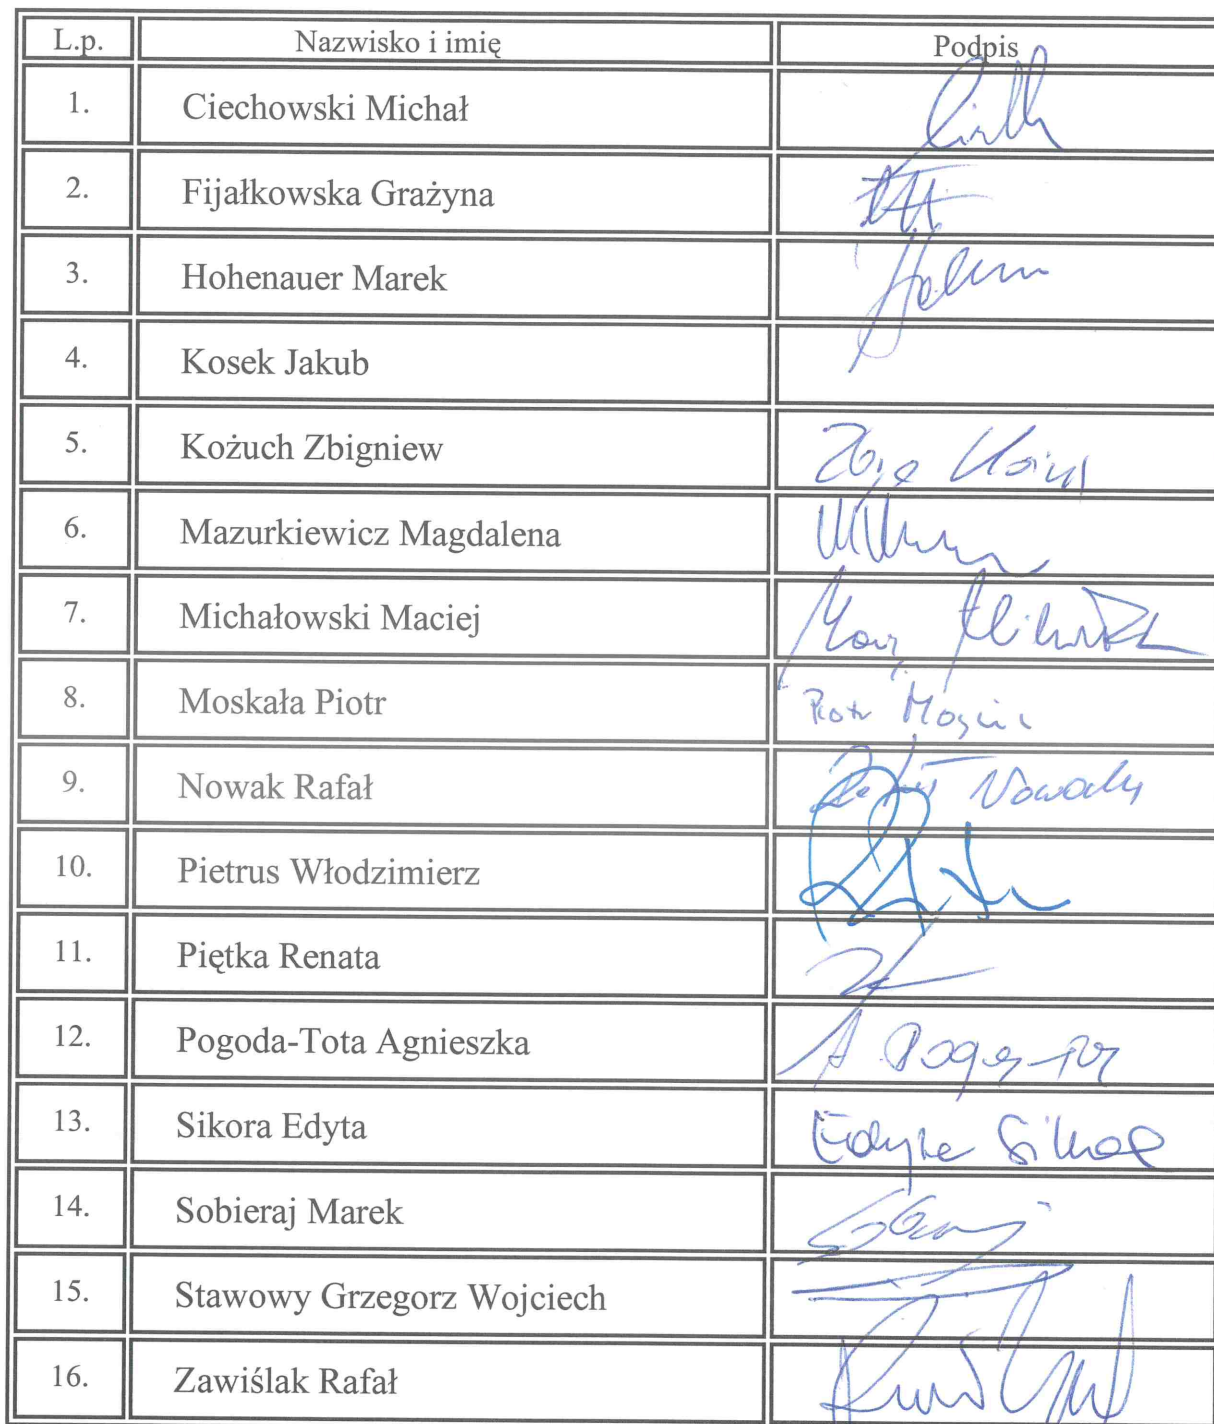 L.p. Nazwisko i imię Podpis
1. Ciechowski Michał
2. Fijałkowska Grażyna
3. Hohenauer Marek
4. Kosek Jakub
5. Kożuch Zbigniew
6. Mazurkiewicz Magdalena
7. Michałowski Maciej
8. Moskała Piotr Piotr
9. Nowak Rafał Rafał Nowak
10. Pietrus Włodzimierz
11. Piętka Renata
12. Pogoda-Tota Agnieszka A
13. Sikora Edyta Edyta Sikora
14. Sobieraj Marek
15. Stawowy Grzegorz Wojciech
16. Zawiślak Rafał